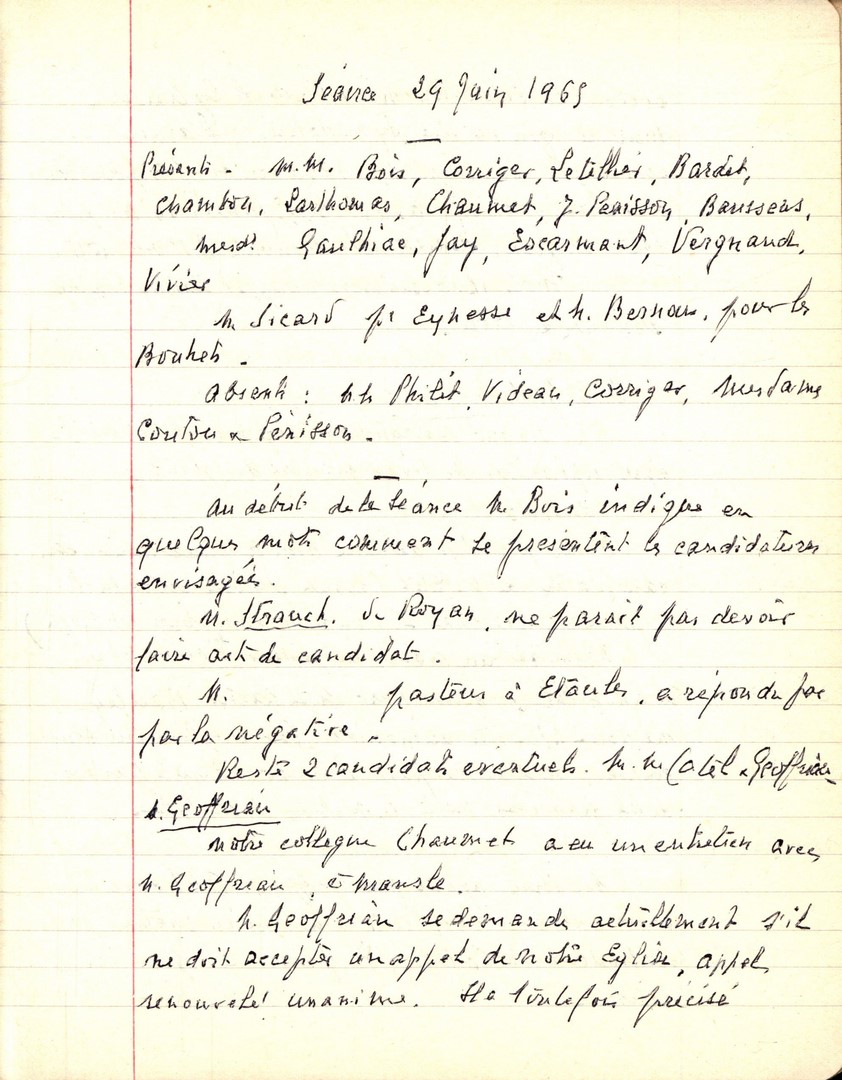 Séance 29 Juin 1965
Présents - M.M. Bois, Corriger, Letellier, Bardet,
Chambon, Larthomas, Chaumet, J. Penisson, Baussens,
Mesd. Gaulhiac, Jay, Escarmant, Vergnaud,
Vivier
M. Sicard pr Eynesse et M. Bernou, pour les
Bouhets.
Absents : MM Philit, Videau, Corriger, Mesdames
Coutou & Pénisson.
Au début de la Séance M. Bois indique en
quelques mots comment se présentent les candidatures
envisagées.
M. Strauch, de Royan, ne parait pas devoir
faire acte de candidat.
M. pasteur à Etaules, a répondu
par la négative.
Reste 2 candidats éventuels. M.M. Catel & Geoffrian
M. Geoffrian
Notre collègue Chaumet a eu un entretien avec
M. Geoffrian, à
M. Geoffrian se demande actuellement s'il
ne doit accepter un appel de notre Eglise, appel
renouvelé unanime. Il a toutefois précisé